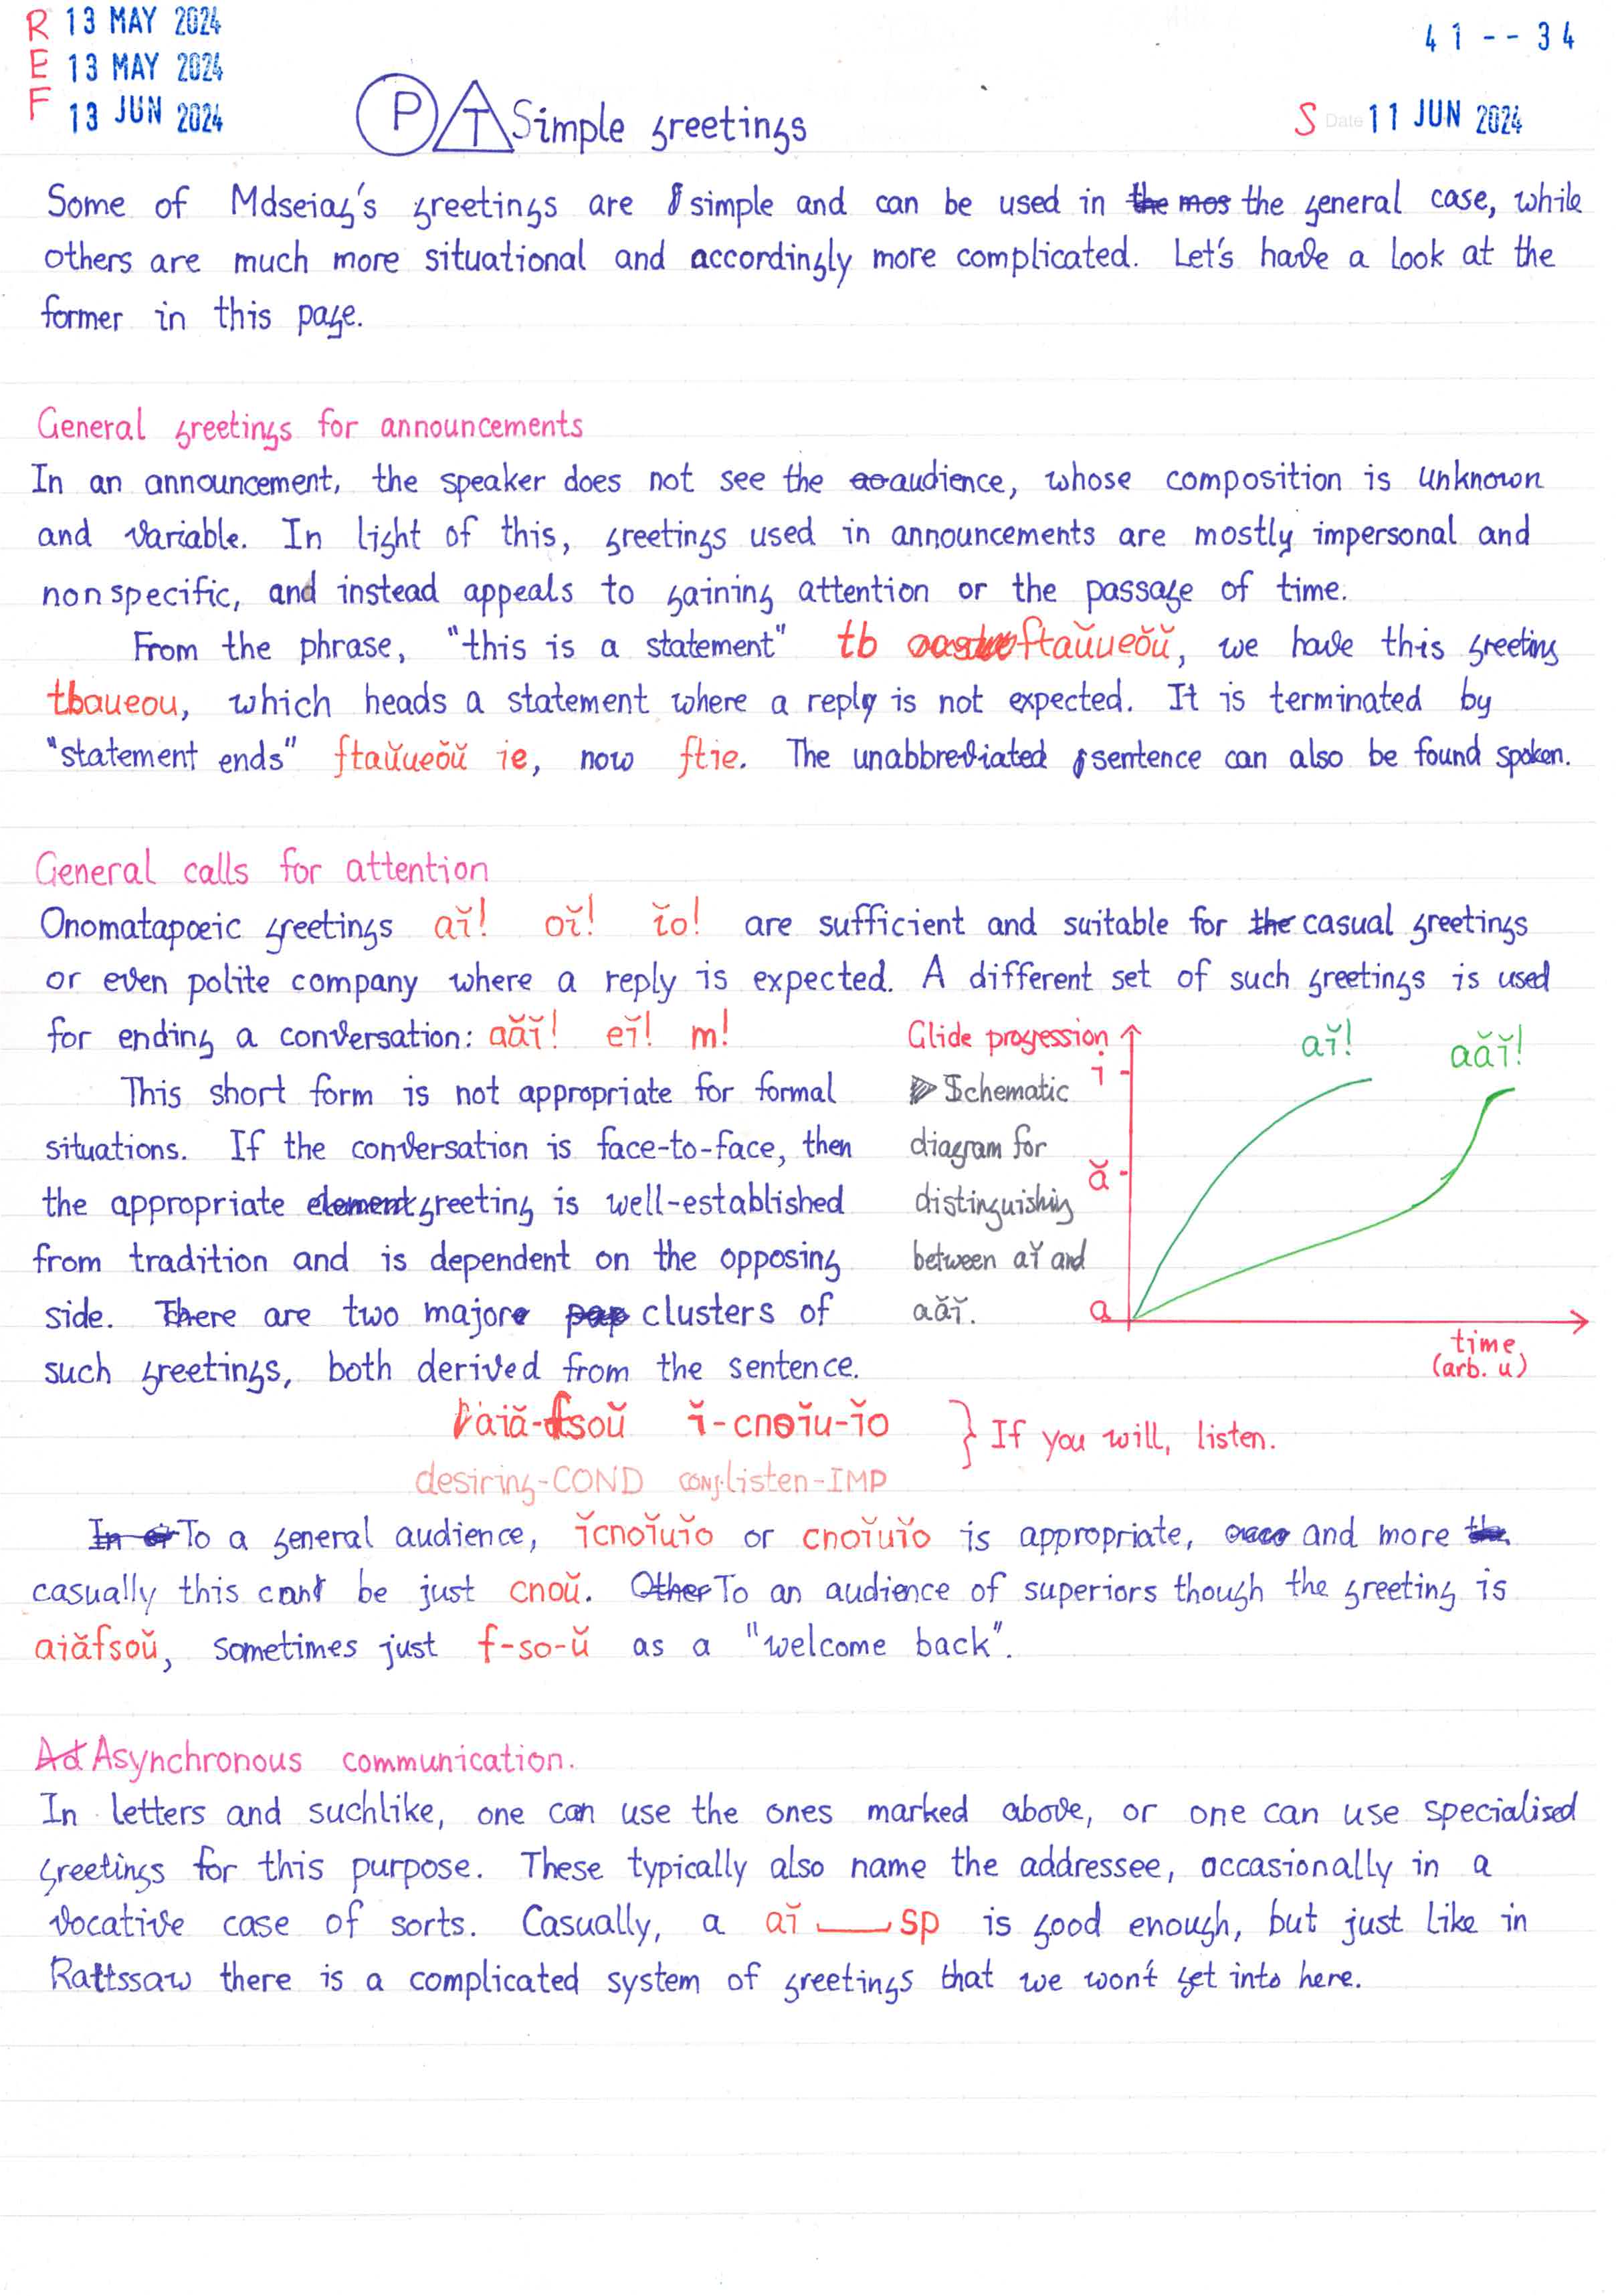 R 13 MAY 2024
E 13 MAY 2024
F 13 JUN 2024
41--34
P T Simple greetings
S Date 11 JUN 2024
Some of Mdseiag's greetings are simple and can be used in the mos the general case, while
others are much more situational and accordingly more complicated. Let's have a look at the
former in this page.
General greetings for announcements
In an announcement, the speaker does not see the ao audience, whose composition is unknown
and variable. In light of this, greetings used in announcements are mostly impersonal and
nonspecific, and instead appeals to gaining attention or the passage of time.
From the phrase, "this is a statement" tb ftaŭueŏŭ, we have this greeting
tbaueou, which heads a statement where a reply is not expected. It is terminated by
"statement ends" ftaŭueŏŭ ie, now ftie. The unabbreviated sentence can also be found spoken.
General calls for attention
Onomatapoeic greetings aĭ! oĭ! ĭo! are sufficient and suitable for the casual greetings
or even polite company where a reply is expected. A different set of such greetings is used
for ending a conversation: aăĭ! eĭ! m!
This short form is not appropriate for formal
situations. If the conversation is face-to-face, then
the appropriate element greeting is well-established
from tradition and is dependent on the opposing
side. There are two major pop clusters of
such greetings, both derived from the sentence.
Glide progression
ĭ
ă
a
aĭ!
aăĭ!
time
(arb. u)
Schematic
diagram for
distinguishing
between aĭ and
aăĭ.
aiă-fsoŭ ĭ-cnoĭu-ĭo } If you will, listen.
desiring-COND CONJ-listen-IMP
In To a general audience, ĭcnoĭuĭo or cnoĭuĭo is appropriate, and more the
casually this can be just cnoŭ. Other To an audience of superiors though the greeting is
aiăfsoŭ, sometimes just f-so-ŭ as a "welcome back".
Ad Asynchronous communication.
In letters and suchlike, one can use the ones marked above, or one can use specialised
greetings for this purpose. These typically also name the addressee, occasionally in a
vocative case of sorts. Casually, a aĭ ___ sp is good enough, but just like in
Rattssaw there is a complicated system of greetings that we won't get into here.